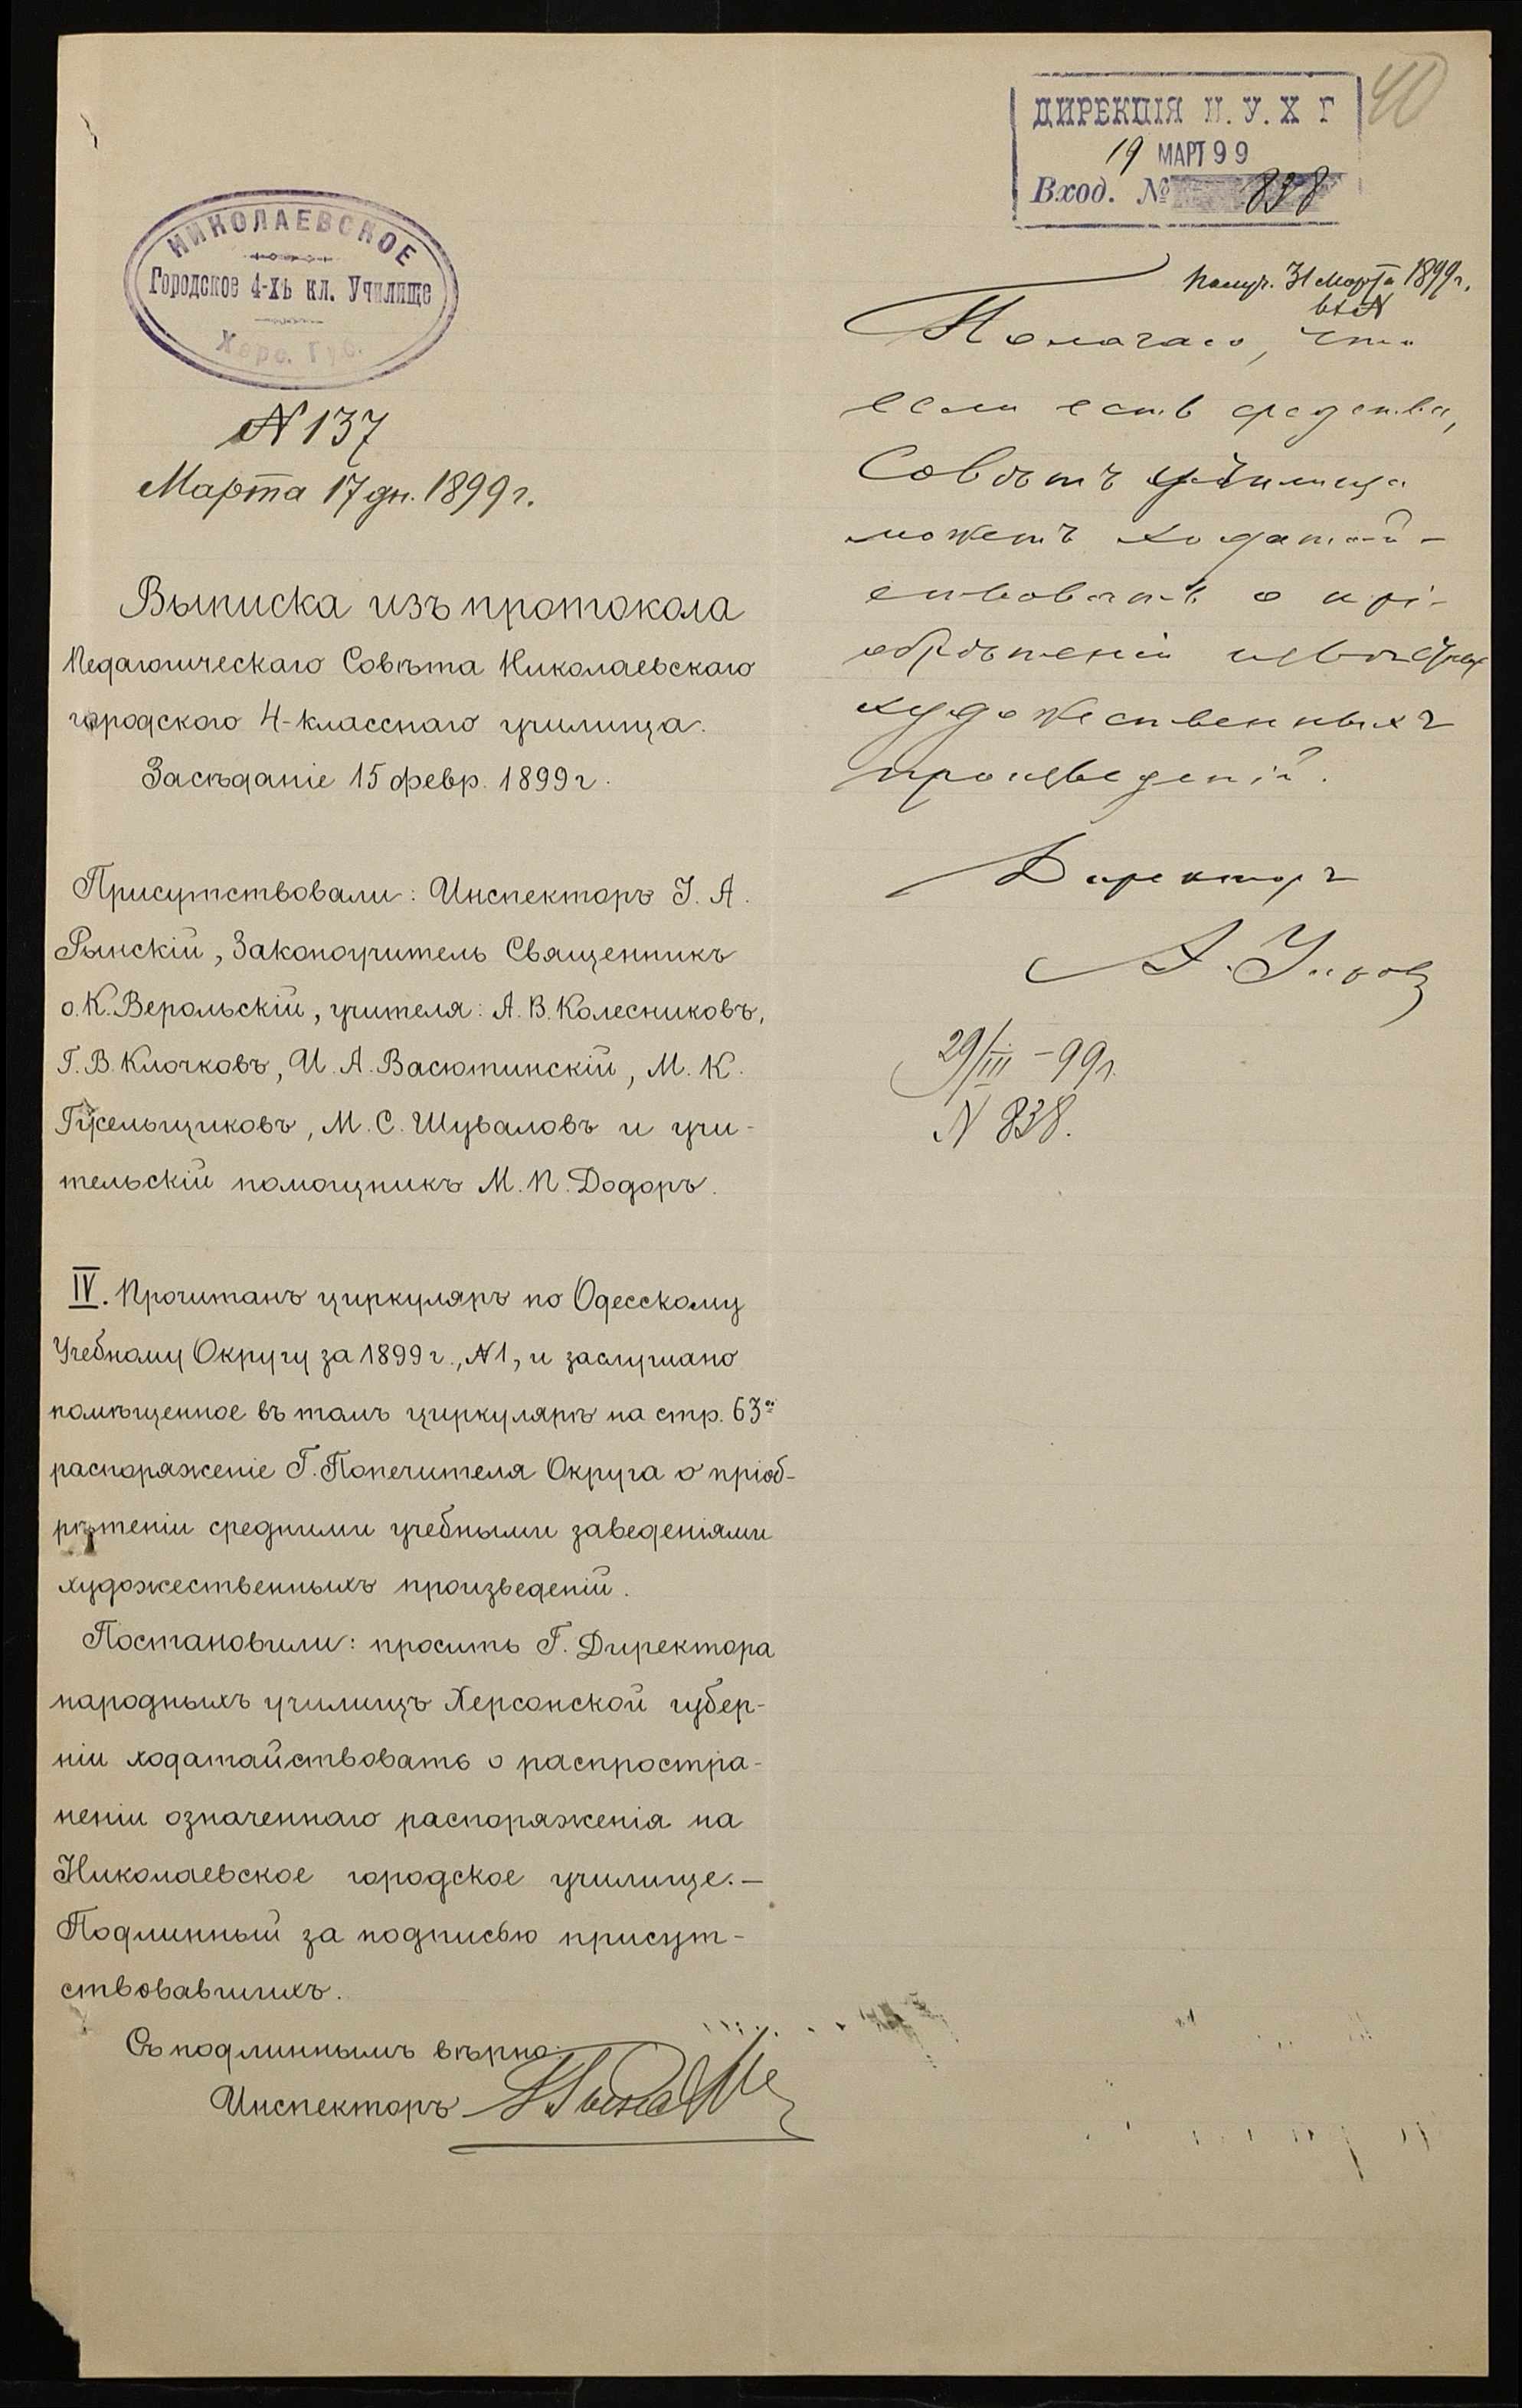 40
ДИРЕКЦІЯ Н. У. Х Г
19 МАРТ 99
Вход. № 838
НИКОЛАЕВСКОЕ
Городское 4-хъ кл. Училище
Херс. Губ.
№ 137
Марта 17 дн. 1899 г.
Выписка изъ протокола
Педагогическаго Совѣта Николаевскаго
городского 4-класснаго училища.
Засѣданіе 15 февр. 1899 г.
Присутствовали: Инспекторъ І. А.
Рынскій, Законоучитель Священникъ
о. К. Верольскій, учителя: А. В. Колесниковъ,
Г. В. Клочковъ, И. А. Васютинскій, М. К.
Гусельщиковъ, М. С. Шуваловъ и учи-
тельскій помощникъ М. П. Додоръ.
IV. Прочитанъ циркуляръ по Одесскому
Учебному Округу за 1899 г., №1, и заслушано
помѣщенное въ томъ циркулярѣ на стр. 63ей
распоряженіе Г. Попечителя Округа о пріоб-
рѣтеніи средними учебными заведеніями
художественныхъ произведеній.
Постановили: просить Г. Директора
народныхъ училищъ Херсонской губер-
ніи ходатайствовать о распростра-
неніи означеннаго распоряженія на
Николаевское городское училище.—
Подлинный за подписью присут-
ствовавшихъ.
Съ подлиннымъ вѣрно:
Инспекторъ
Получ. 31 Марта 1899 г.
Полагаю, что
если есть средства,
Совѣтъ училища
можетъ ходатай-
ствовать о прі-
обрѣтеніи
художественныхъ
произведеній.
Директоръ
29/III – 99 г.
N 838.